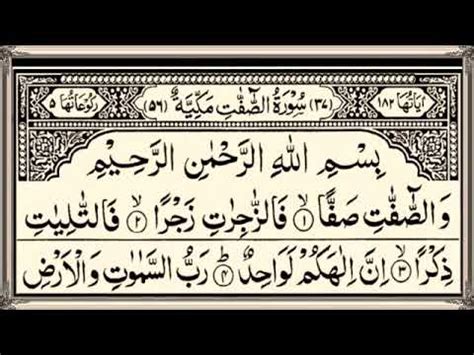 اٰيَاتُهَا ١٨٢ (٣٧) سُوْرَةُ الصّٰٓفّٰتِ مَكِّيَّةٌ (٥٦) رُكُوْعَاتُهَا ٥
بِسْمِ اللهِ الرَّحْمٰنِ الرَّحِيْمِ
وَالصّٰٓفّٰتِ صَفًّا ۙ﴿١﴾ فَالزّٰجِرٰتِ زَجْرًا ۙ﴿٢﴾ فَالتّٰلِيٰتِ
ذِكْرًا ۙ﴿٣﴾ اِنَّ اِلٰهَكُمْ لَوَاحِدٌ ؕ﴿٤﴾ رَبُّ السَّمٰوٰتِ وَالْاَرْضِ